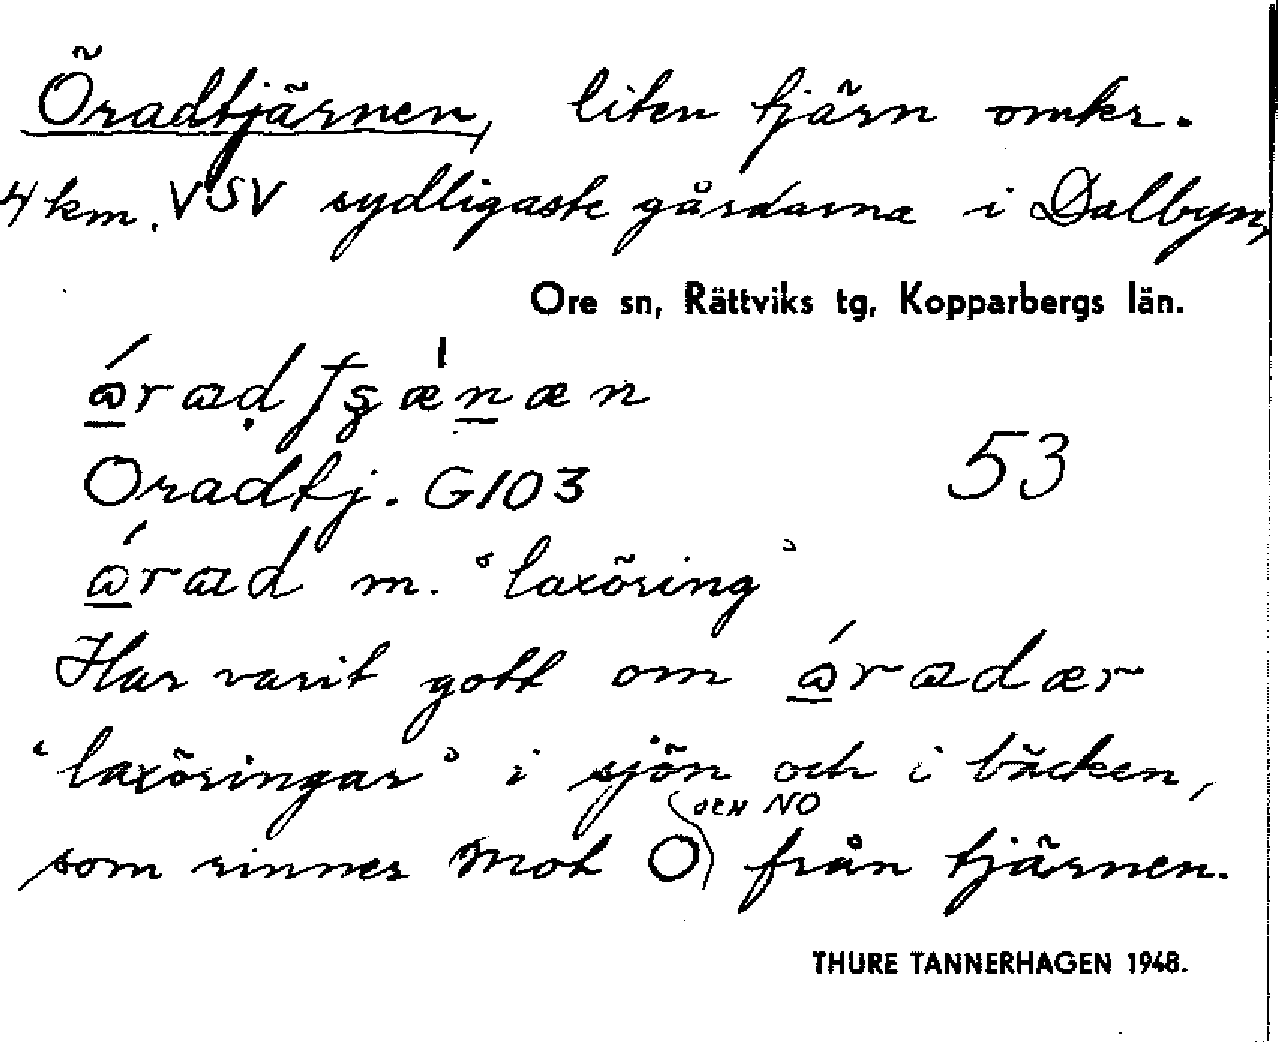 Öradtjärnen, liten tjärn omkr.
4 km. VSV sydligaste gårdarna i Dalbyn,
Ore sn, Rättviks tg, Kopparbergs län.
Oradtj. G103
53
m. "laxöring"
Har varit gott om
"laxöringar" i sjön och i bäcken,
OCH NO
som rinner mot O från tjärnen.
THURE TANNERHAGEN 1948.